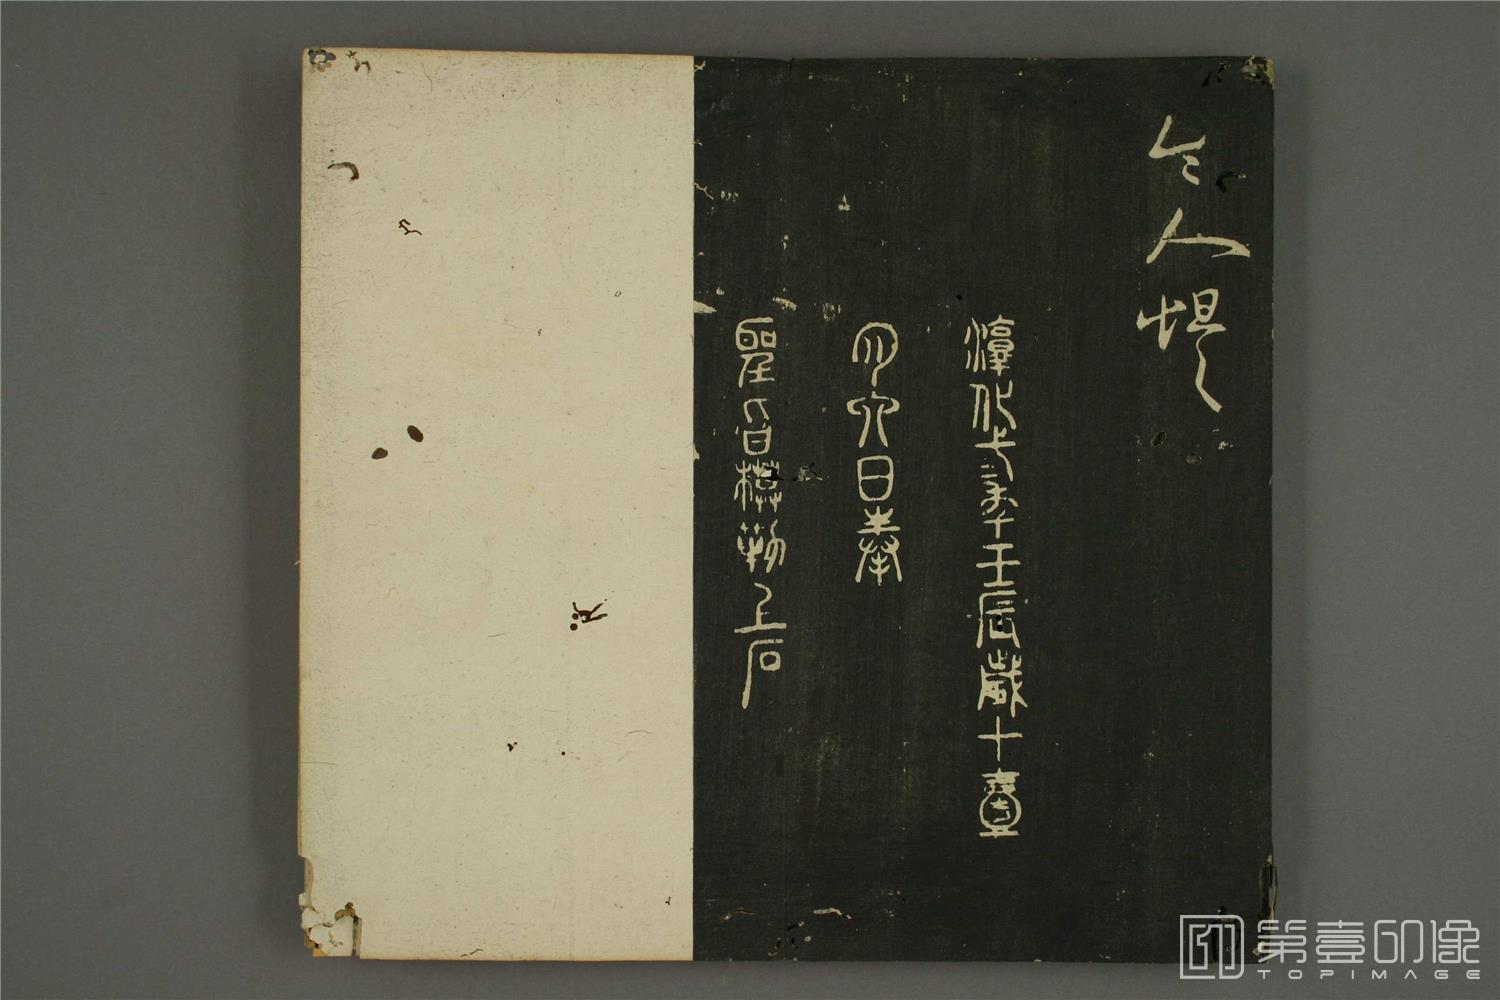 令人悒
淳化三年壬辰歲十壹
月六日奉
聖旨模勒上石
第壹印像
TOPIMAGE